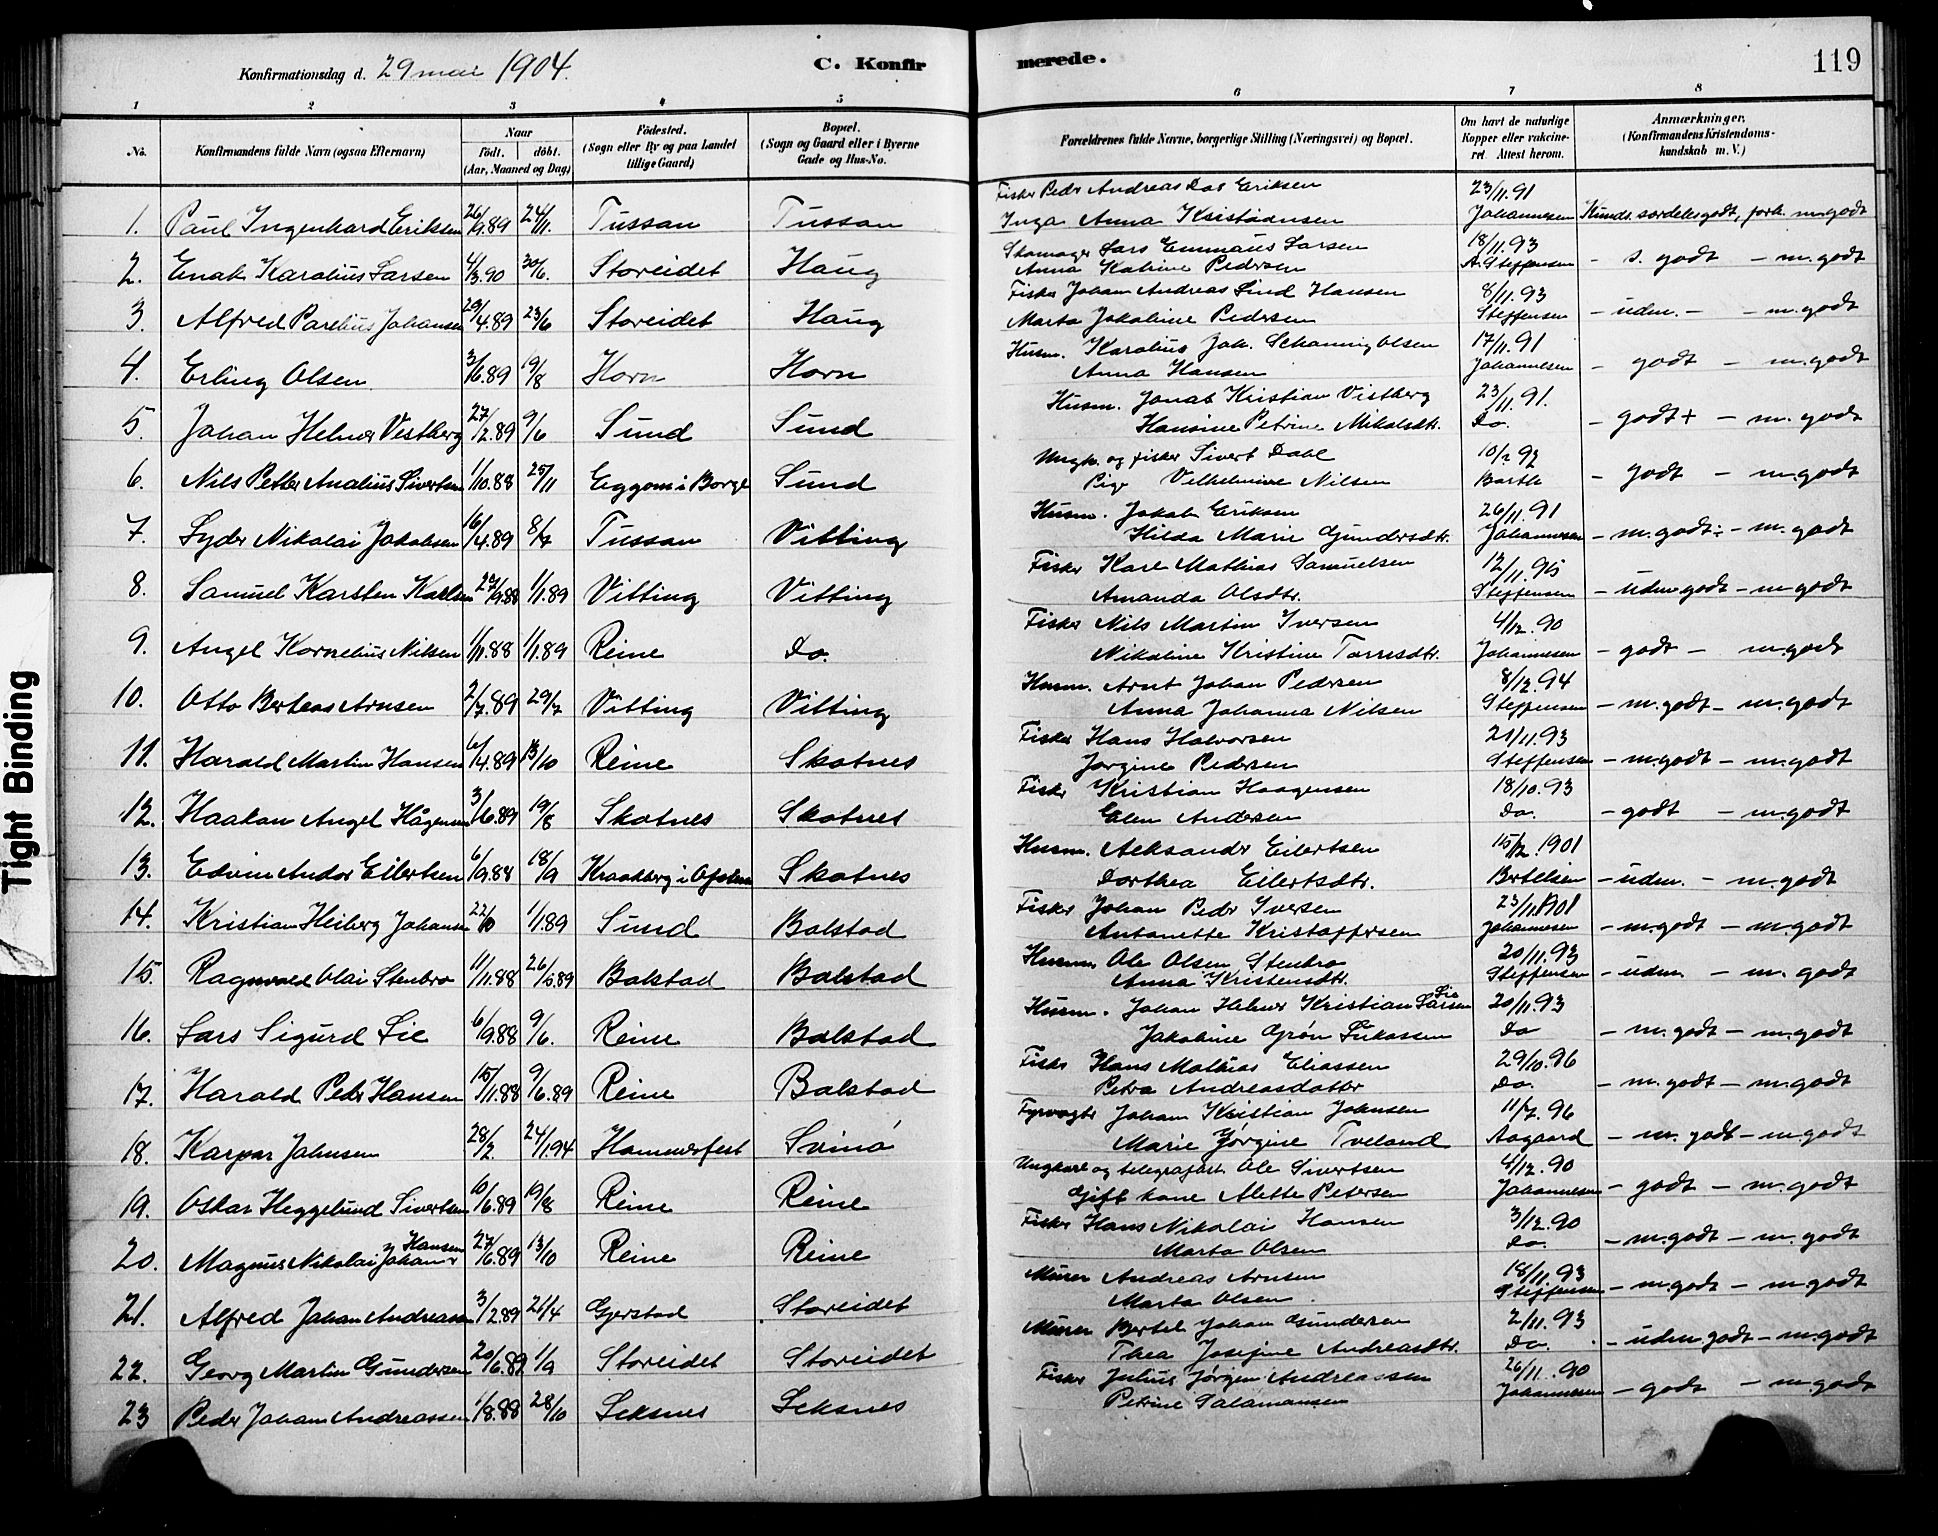 Konfirmationsdag d. 29 mai 1904.
C. Konfirmerede.
119
1 2 3 4 5 6 7 8
No.
Konfirmandens fulde Navn (ogsaa Efternavn)
Naar
født. døbt.
(Aar, Maaned og Dag)
Fødested.
(Sogn eller By og paa Landet
tillige Gaard)
Bopæl.
(Sogn og Gaard eller i Byerne
Gade og Hus-No.
Forældrenes fulde Navne, borgerlige Stilling (Næringsvei) og Bopæl.
Om havt de naturlige
Kopper eller vakcine-
ret Attest herom.
Anmærkninger.
(Konfirmandens Kristendoms-
kundskab m. V.)
Fisker Peder Andreas Eriksen 23/11.91
1. Paul Ingenhard Eriksen 26/9.89 24/11. Tussan Tussan Inga Anna Kristiansen Johannesen Kundsk. særdeles godt, forh. m. godt
Skomager Lars Emmaus Larsen 18/11.93
2. Enok Karolius Larsen 4/3.90 30/6. Storeidet Haug Anna Katrine Pedersen A. Steffensen - s. godt - m. godt
Fisker Johan Andreas Lind Hansen 8/11.93
3. Alfred Parelius Johansen 29/4.89 23/6 Storeidet Haug Marta Jakobine Pedersen Steffensen - udm. - - m. godt
Husm. Karolius Joh. Schanning Olsen 17/11.91
4. Erling Olsen 3/6.89 19/8 Horn Horn Anna Hansen Johannesen - godt - m. godt
Husm. Jonas Kristian Vestberg 23/11.91.
5. Johan Helmer Vestberg 27/2.89 9/6 Sund Sund Hansine Petrine Mikalsdtr. Do. - godt + - m. godt
Ungk. og fisker Sivert Dahl 10/2 92
6. Nils Petter Analius Sivertsen 1/10.88 25/11 Eggom i Borge Sund Pige Vilhelmine Nilsen Barth - godt - m. godt
Husm. Jakob Eriksen 26/11.91
7. Lyder Nikolai Jakobsen 16/4.89 8/7 Tussan Vitting Hilda Marie Gundersdtr. Johannesen - m. godt ÷ - m. godt
Fisker Karl Mathias Samuelsen 12/11.95
8. Samuel Karsten Karlsen 27/9.88 1/1.89 Vitting Vitting Amanda Olsdtr. Steffensen - udm. godt - m. godt
Fisker Nils Martin Iversen 4/12.90
9. Angel Kornelius Nilsen 1/11.88 1/1.89 Reine Do. Nikoline Kristine Torresdtr. Johannesen - godt - m. godt
Husm. Arnt Johan Pedersen 8/12.94
10. Otto Berteas Arnsen 2/7.89 29/7 Vitting Vitting Anna Johanna Nilsen Steffensen - m. godt - m. godt
Fisker Hans Halvorsen 21/11.93
11. Harald Martin Hansen 6/4.89 13/10 Reine Skotnes Jørgine Pedersen Steffensen - m. godt - m. godt
Fisker Kristian Haagensen 18/10.93
12. Haakon Angel Hågensen 3/6.89 19/8 Skotnes Skotnes Elen Andersen Do. - godt - m. godt
Husm. Aleksander Eilertsen 15/2.1901
13. Edvin Andor Eilertsen 6/9.88 18/9 Kraakberg i Skotnes Dorthea Eilertsdtr. Bertelsen - udm. - m. godt
Fisker Johan Peder Iversen 23/11.1901
14. Kristian Heiberg Johansen 22/10 1/1.89 Sund Balstad Antonette Kristoffersen Johannesen - m. godt - m. godt
Husm. Ole Olsen Stenbro 20/11.93
15. Ragnvald Olai Stenbro 11/11.88 26/5.89 Balstad Balstad Anna Kristensdtr. Steffensen - udm. - m. godt
Husm. Johan Helmer Kristian Larsen Lie 20/11.93
16. Lars Sigurd Lie 6/9.88 9/6. Reine Balstad Jakobine Grøn Lukassen Do - m. godt - m. godt
Fisker Hans Mathias Eliassen 29/10.96
17. Harald Peder Hansen 15/11.88 9/6.89 Reine Balstad Petra Andreasdatter Do. - m. godt - m. godt
Fyrvogter Johan Kristian Johnsen 11/7.96
18. Kaspar Johnsen 28/2 24/1.94 Hammerfest Svinø Marie Jørgine Tveland Aagaard - m. godt - m. godt
Ungkarl og telegrafast. Ole Sivertsen 4/12.90
19. Oskar Heggelund Sivertsen 10/6.89 19/8 Reine Reine Gift kone Alette Petersen Johannesen - godt - m. godt
Fisker Hans Nikolai Hansen 3/12.90
20. Magnus Nikolai Johan Hansen 27/6.89 13/10 Reine Reine Marta Olsen Do. - m. godt - m. godt
Murer Andreas Arnsen 18/11.93
21. Alfred Johan Andreassen 3/2.89 21/4 Gjerstad Storeidet Marta Olsen Steffensen - m. godt - m. godt
Murer Bertel Johan Gundersen 2/11.93
22. Georg Martin Gundersen 20/6.89 1/9 Storeidet Storeidet Thea Josefine Andreasdtr. Do. - udm. godt - m. godt
Fisker Julius Jørgen Andreassen 26/11.90
23 Peder Johan Andreassen 1/8.88 28/10 Leksnes Leksnes Petrine Salamonsen Johannesen - godt - m. godt
Tight Binding